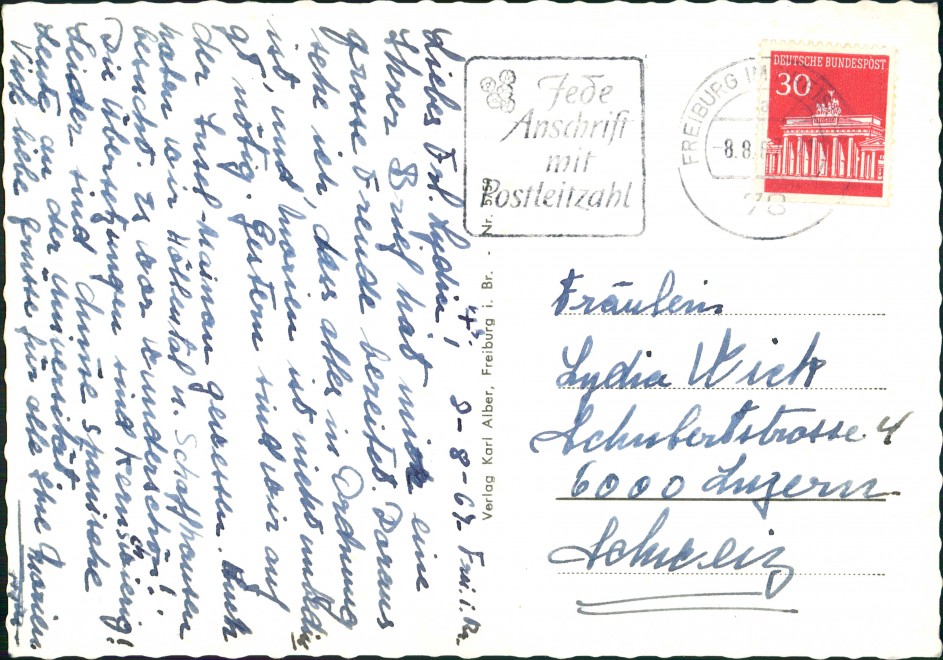 Jede
Anschrift
mit
Postleitzahl
FREIBURG IM
-8.8.6
78
DEUTSCHE BUNDESPOST
30
8-8-67 Frei.i.Br.
Liebes Frl. Lydia!
Ihrer Brief hat mir eine
grosse Freude bereitet. Daraus
sehe ich, dass alles in Ordnung
ist, und Marien ist nicht
nötig. Gestern sind wir auf
der Insel-Mainau gewesen. Auch
haben wir Höllental u. Schaffhausen
besucht. Es war wunderschön!
Die Übersetzungen sind
Leider sind
Leute an der Universität
Viele liebe Grüsse für alle Ihre Marien
Verlag Karl Alber, Freiburg i. Br. - Nr. 5759
Fräulein
Lydia Wick
Schubertstrasse 4
6000 Luzern
Schweiz